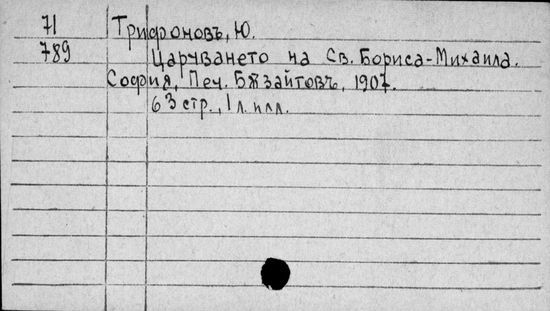 71 Трифоновъ, Ю.
789 Царуването на Св. Бориса-Михаила.
София, Печ. Бѫзайтовъ, 1907.
63 стр., 1 л. илл.